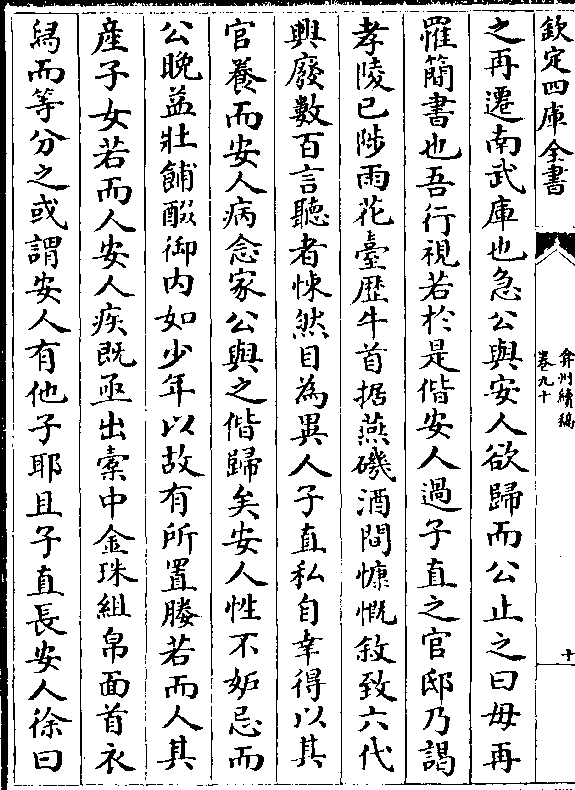 欽定四庫全書
弇州續稿
卷九十
十
之再遷南武庫也急公與安人欲歸而公止之曰毋再
罹簡書也吾行視若於是偕安人過子直之官邸乃謁
孝陵已陟雨花臺歴牛首据燕磯酒間慷慨敘致六代
興廢數百言聽者悚然目為異人子直私自幸得以其
官養而安人病念家公與之偕歸矣安人性不妬忌而
公晚益壯餔醊御内如少年以故有所置媵若而人其
産子女若而人安人疾既亟出槖中金珠組帛面首衣
舄而等分之或謂安人有他子耶且子直長安人徐曰